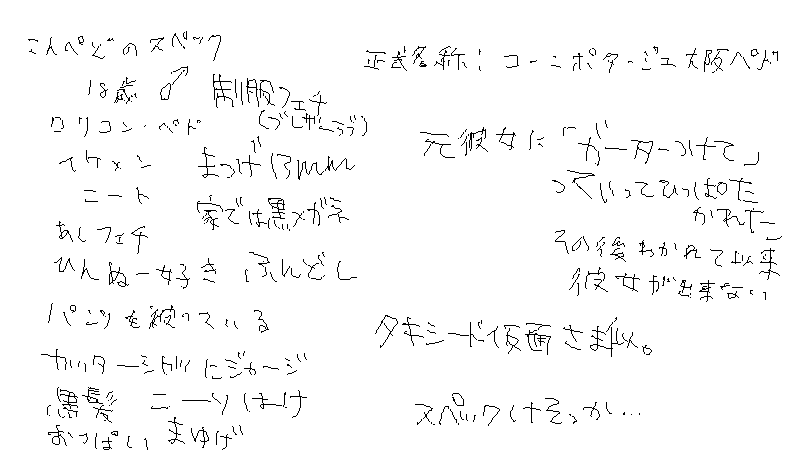 こんぺどのスペック
18歳 ♂ 制服フェチ
(ブレザーラブ)
ロリコン・ペド
イケメン まつげ13mm
ニート 家では黒メガネ
あしフェチ
ひんぬー好き ふんどし
パンツを被っている
カッターシャツにジャージ
黒髪 ニーソはけ
おっぱい まゆげ
正式名称:コーンポタージュ大阪ペド
元彼女に「ガーターつけて」
っていってひっぱた
かれた
その後わかれて以来
彼女が出来ない
タキシード仮面さま似。
スペックはそっか…